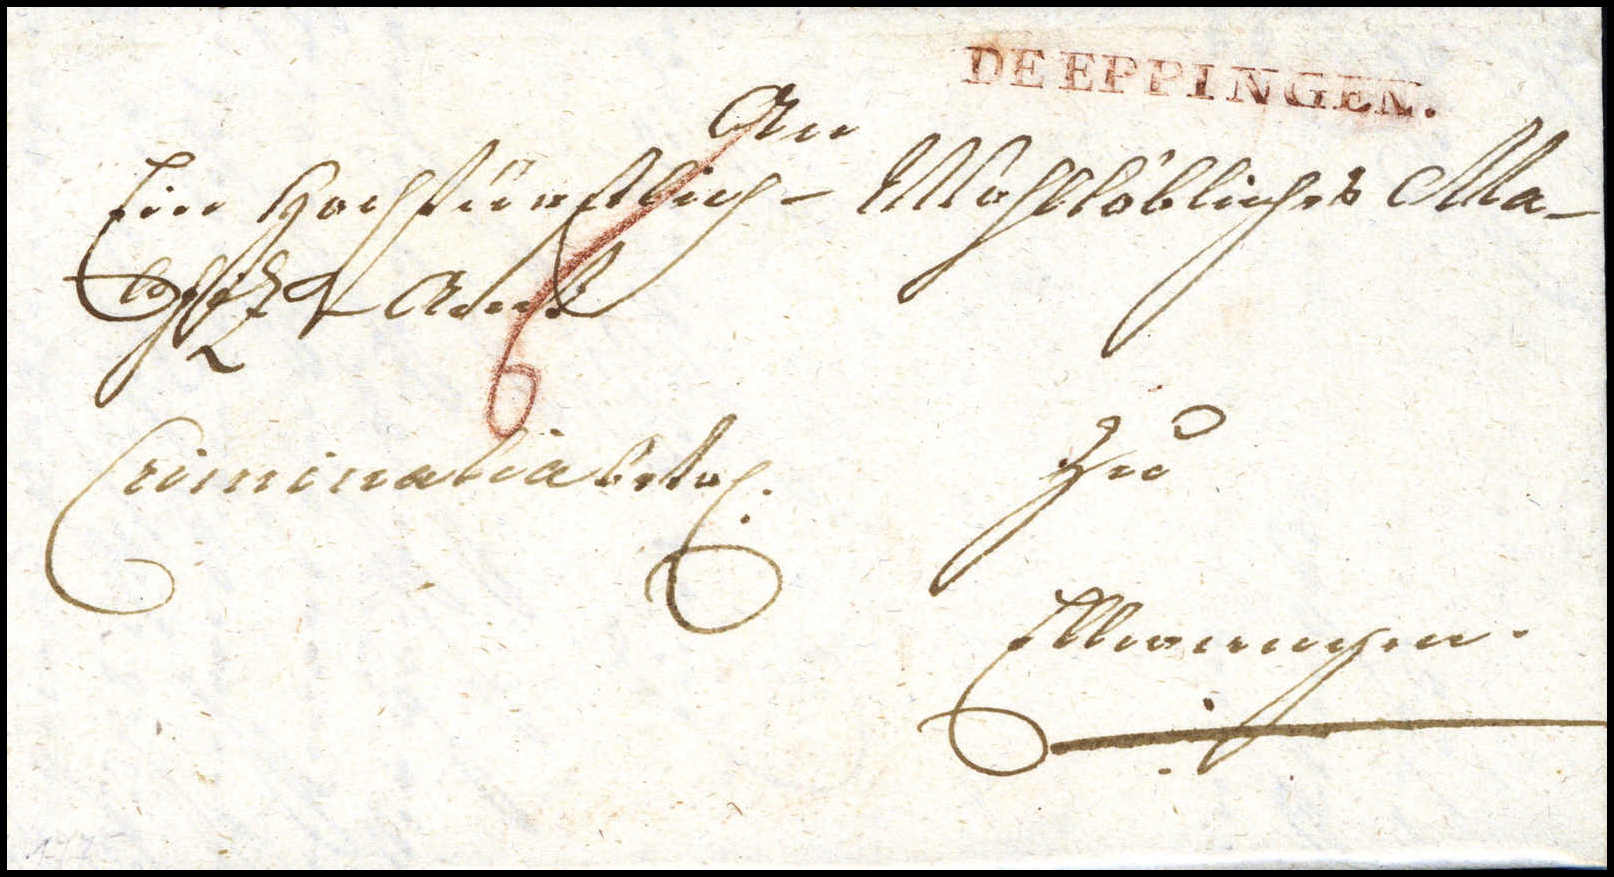 DE EPPINGEN.
An
Ein Hochfürstlich- Wohllöbliches Ma-
Amt
6
Criminalia betr.
Zu
Ellwangen.